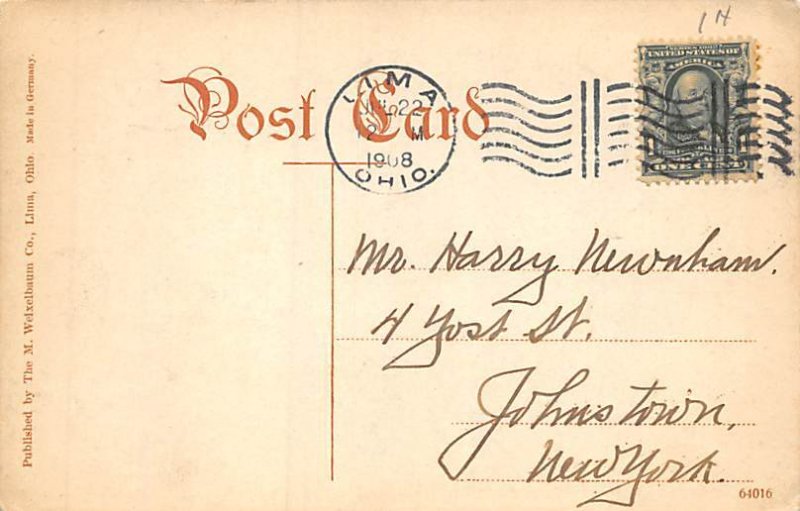 14
SERIES 1902
UNITED STATES OF
AMERICA
Post Card
LIMA
22
M
1908
OHIO.
Mr. Harry Newnham.
4 Yost St.
Johnstown,
New York.
64016
Published by The M. Weixelbaum Co., Lima, Ohio. Made in Germany.